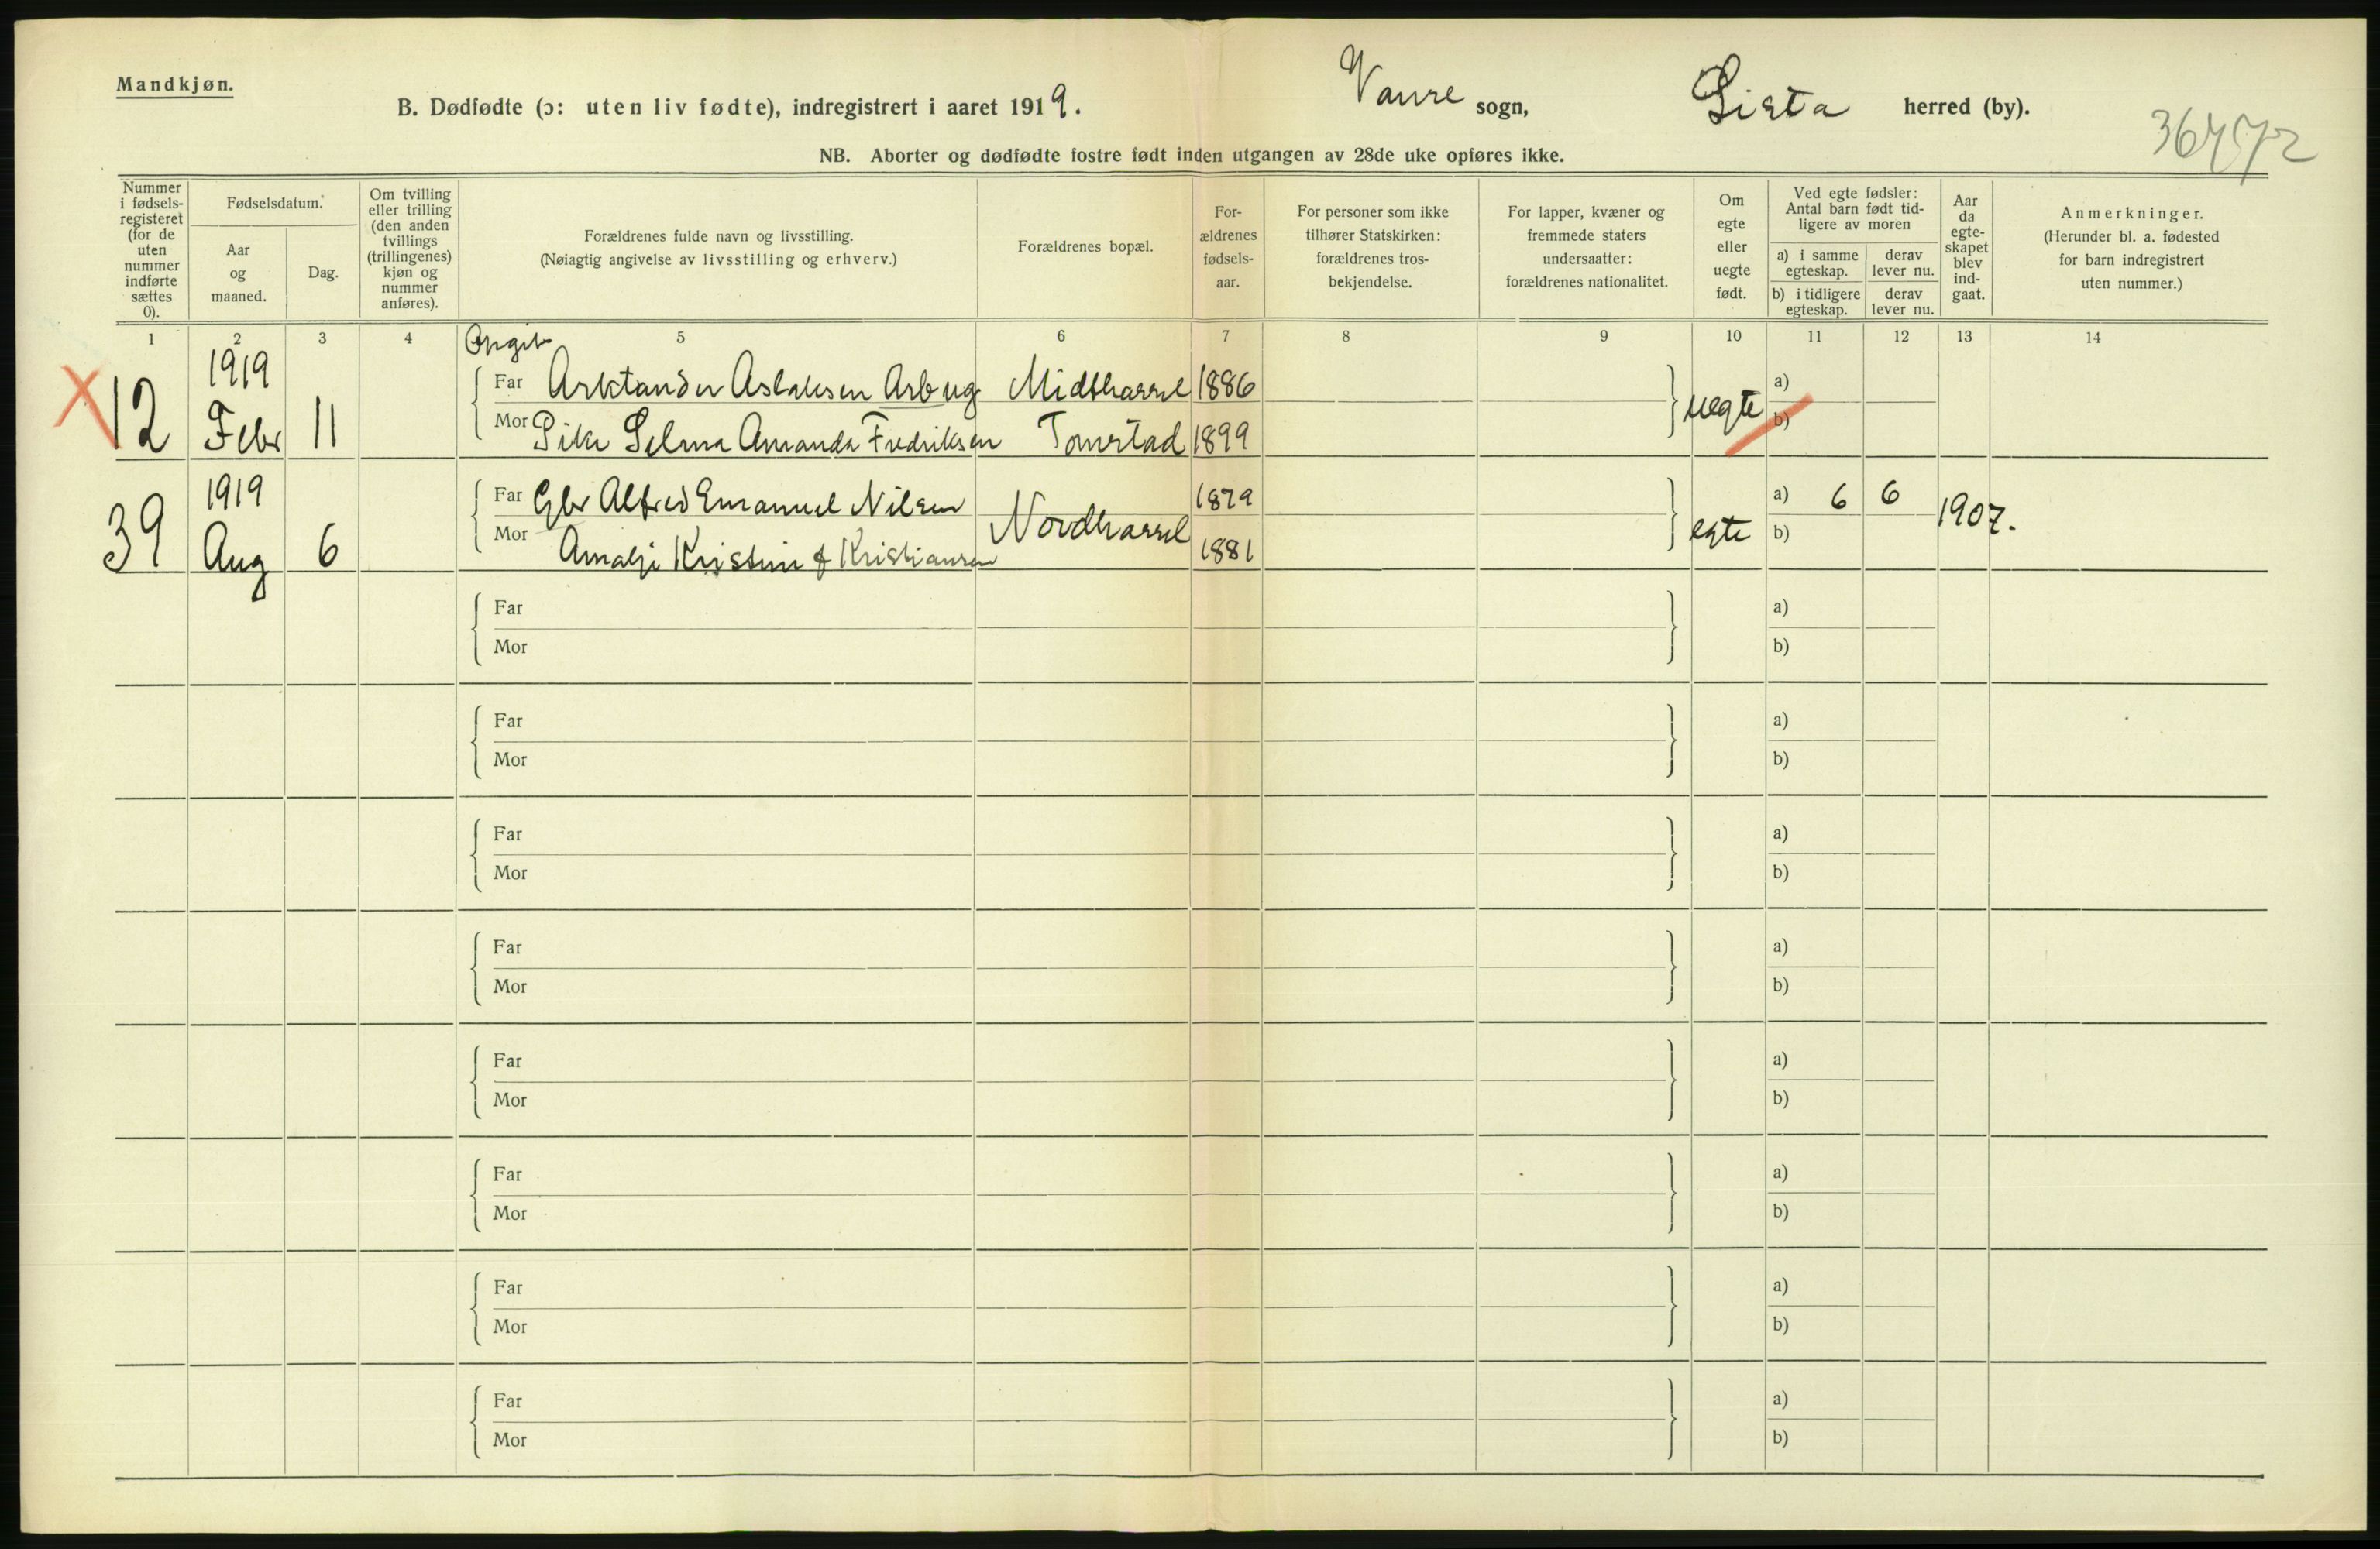 Mandkjøn.
B. Dødfødte (ɔ: uten liv fødte), indregistrert i aaret 1919. Vanse sogn, Lista herred (by).
NB. Aborter og dødfødte fostre født inden utgangen av 28de uke opføres ikke.
Nummer i fødsels-registeret (for de uten nummer indførte sættes 0).
Fødselsdatum.
Aar og maaned.
Dag.
Om tvilling eller trilling (den anden tvillings (trillingenes) kjøn og nummer anføres).
Forældrenes fulde navn og livsstilling.
(Nøiagtig angivelse av livsstilling og erhverv.)
Forældrenes bopæl.
For-ældrenes fødsels-aar.
For personer som ikke tilhører Statskirken: forældrenes tros-bekjendelse.
For lapper, kvæner og fremmede staters undersaatter: forældrenes nationalitet.
Om egte eller uegte født.
Ved egte fødsler: Antal barn født tid-ligere av moren
a) i samme egteskap.
derav lever nu.
b) i tidligere egteskap.
derav lever nu.
Aar da egte-skapet blev ind-gaat.
Anmerkninger.
(Herunder bl. a. fødested for barn indregistrert uten nummer.)
1 2 3 4 5 6 7 8 9 10 11 12 13 14
Opgit
12 1919 Febr 11 Far Arktander Aslaksen Arbug Midthassel 1886 uegte a)
Mor Pike Selma Amanda Fredriksen Tomstad 1899 b)
39 1919 Aug 6 Far Gbr Alfred Emanuel Nilsen Nordhassel 1879 egte a) 6 6 1907.
Mor Amalje Kristine f Kristiansen 1881 b)
Far a)
Mor b)
Far a)
Mor b)
Far a)
Mor b)
Far a)
Mor b)
Far a)
Mor b)
Far a)
Mor b)
Far a)
Mor b)
Far a)
Mor b)